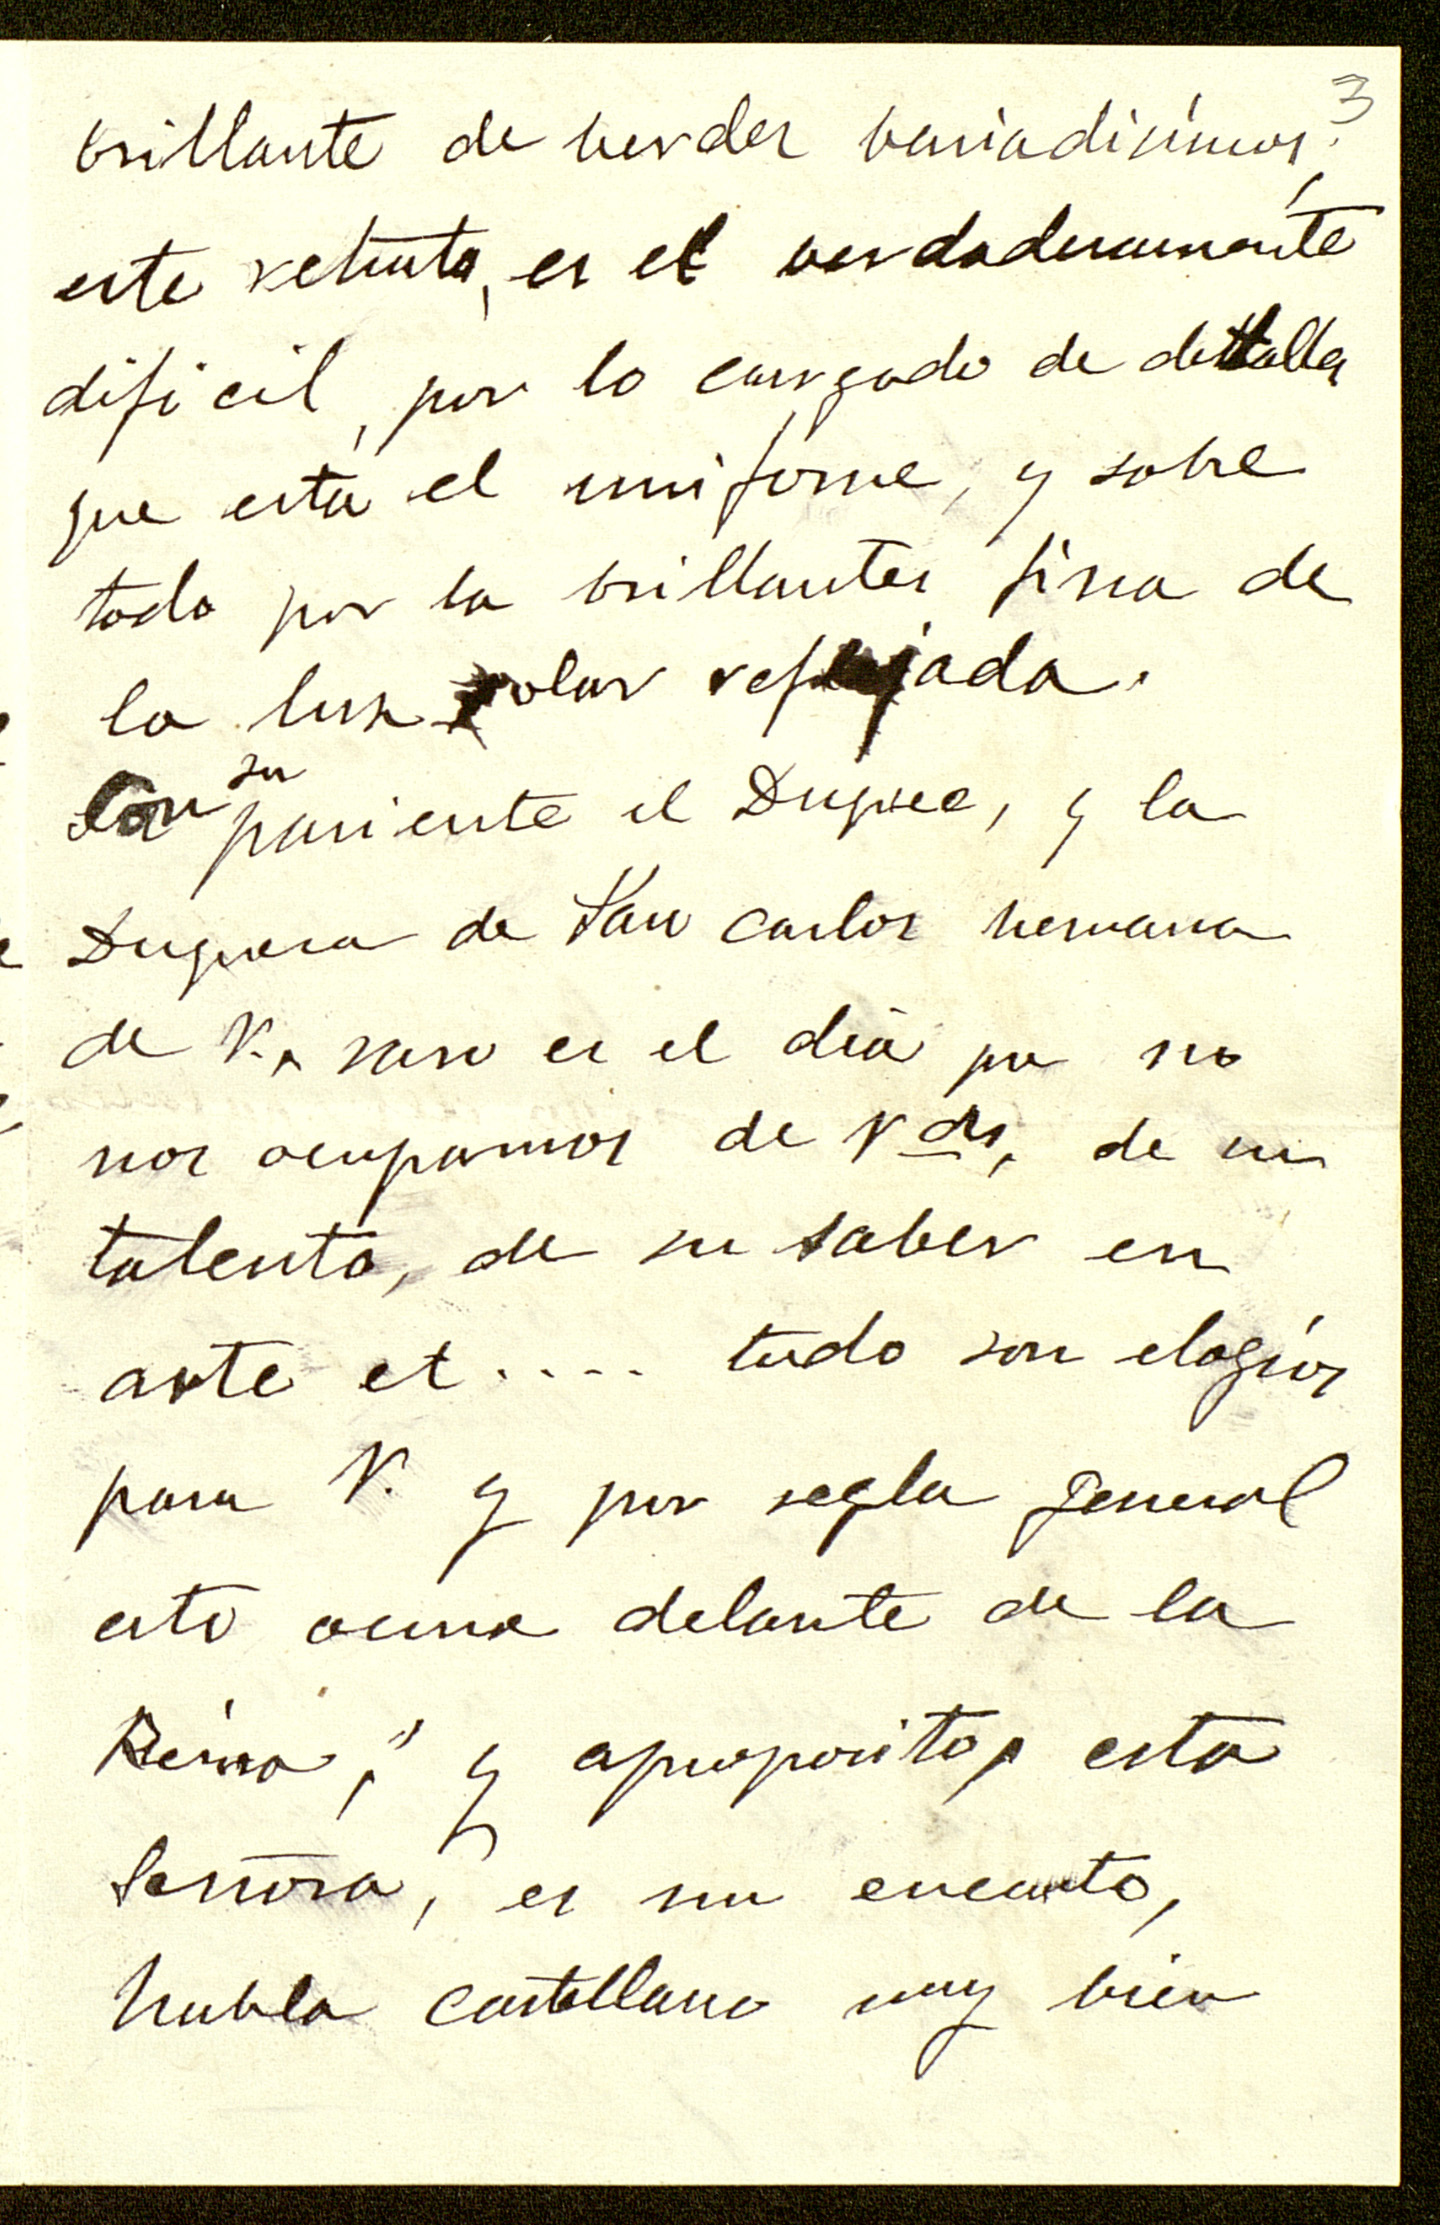 3
brillante de verdes bariadisimos,
este retrato, es el verdaderamente
dificil, por lo cargado de detalles
que está el uniforme, y sobre
todo por la brillantes fina de
la luz solar reflejada.
Con su pariente el Duque, y la
Duquesa de San Carlos hermana
de V. raro es el dia que no
nos ocupamos de Vds, de su
talento, de su saber en
arte et.... todo son elogios
para V. y por regla general
esto ocurre delante de la
Reina, y aproposito, esta
Señora, es un encanto,
habla castellano muy bien